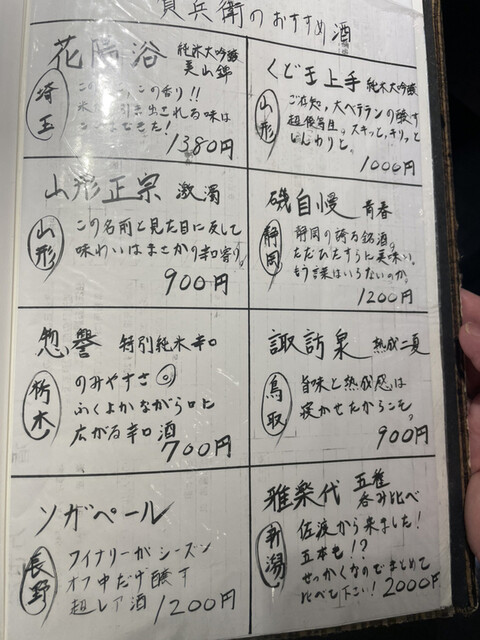 貞兵衛のおすすめ酒
花陽浴 純米大吟醸
美山錦
埼玉
この香り!!
氷 引き出される味は
た!
1380円
くどき上手 純米大吟醸
山形
ご存知、大ベテランの醸す
超優等生。スキッと、キリッと
じんわりと。
1000円
山形正宗 激濁
山形
この名前と見た目に反して
味わいはまさかの辛口寄り。
900円
磯自慢 青春
静岡
静岡の誇る銘酒。
ただひたすらに美味い。
もう言葉はいらないのか。
1200円
惣誉 特別純米辛口
栃木
のみやすさ◎
ふくよかながら口に
広がる辛口酒
700円
諏訪泉 熟成二夏
鳥取
旨味と熟成感は
寝かせたからこそ。
900円
ソガペール
長野
ワイナリーがシーズン
オフ中だけ醸す
超レア酒 1200円
雅楽代 五種
呑み比べ
新潟
佐渡から来ました!
五本も!?
せっかくなのでまとめて
比べて下さい! 2000円